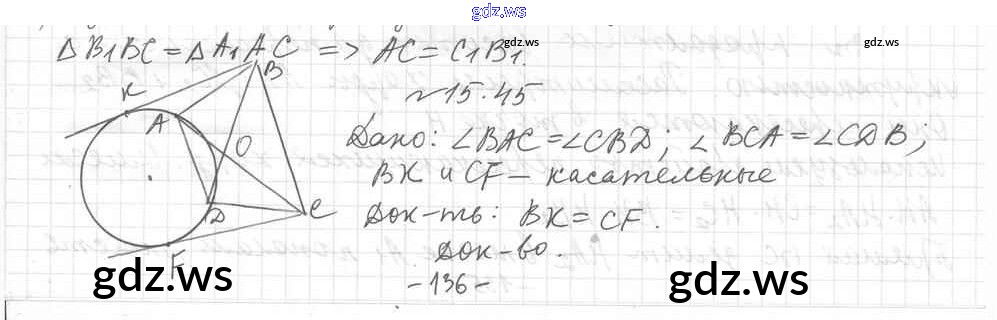 gdz.ws
△ B₁BC = △ A₁AC => AC = C₁B₁.
gdz.ws
gdz.ws
~ 15.45
Дано: ∠BAC = ∠CBD; ∠BCA = ∠CDB;
BK и CF – касательные
Док-ть: BK = CF.
Док-во.
K
B
A
O
D
C
F
gdz.ws
-136-
gdz.ws